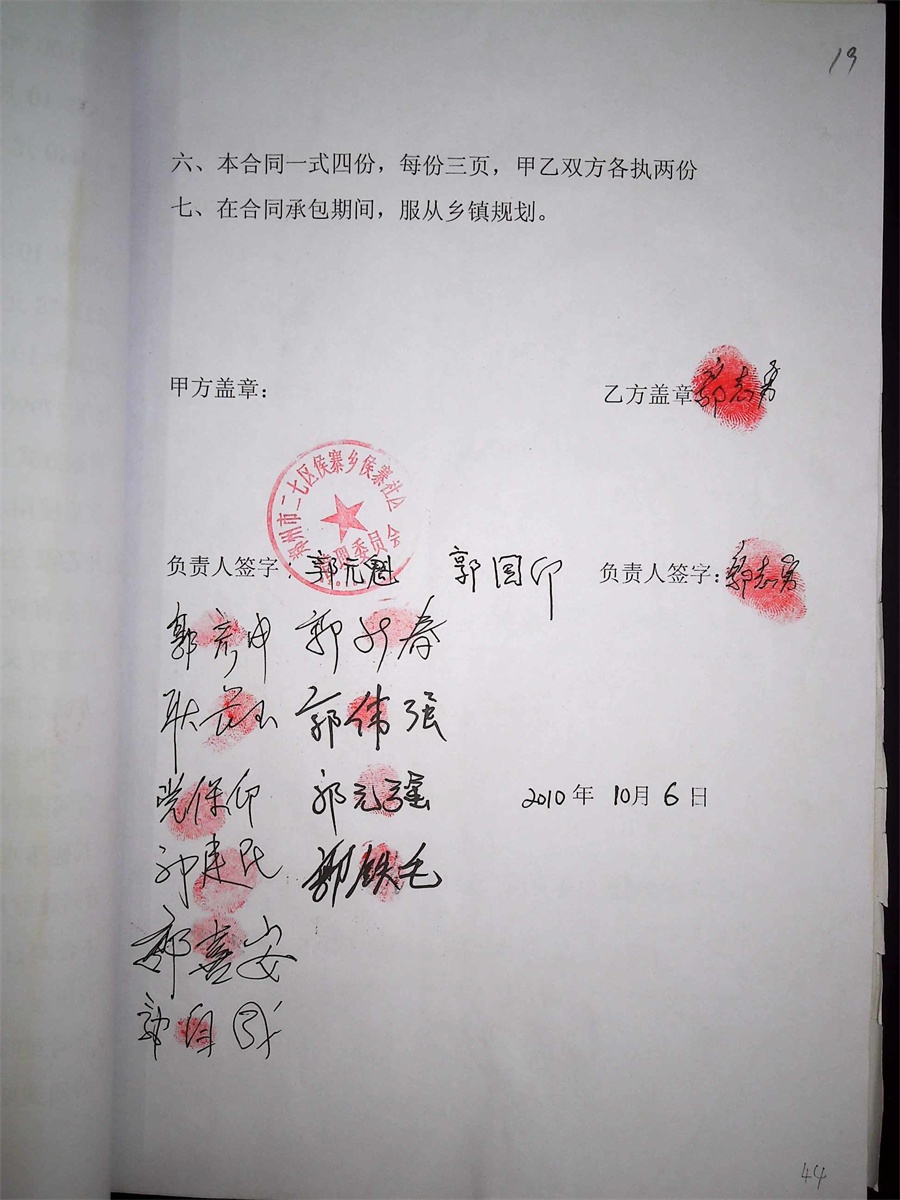 19
六、本合同一式四份，每份三页，甲乙双方各执两份
七、在合同承包期间，服从乡镇规划。
甲方盖章：
乙方盖章 郭志勇
郑州市二七区侯寨乡侯寨社区管理委员会
负责人签字：郭元魁 郭国印 负责人签字：郭志勇
郭 春
耿 玉 郭伟强
党保仰 郭元强
2010年 10月 6日
郭建民 郭铁毛
郭喜安
郭
44